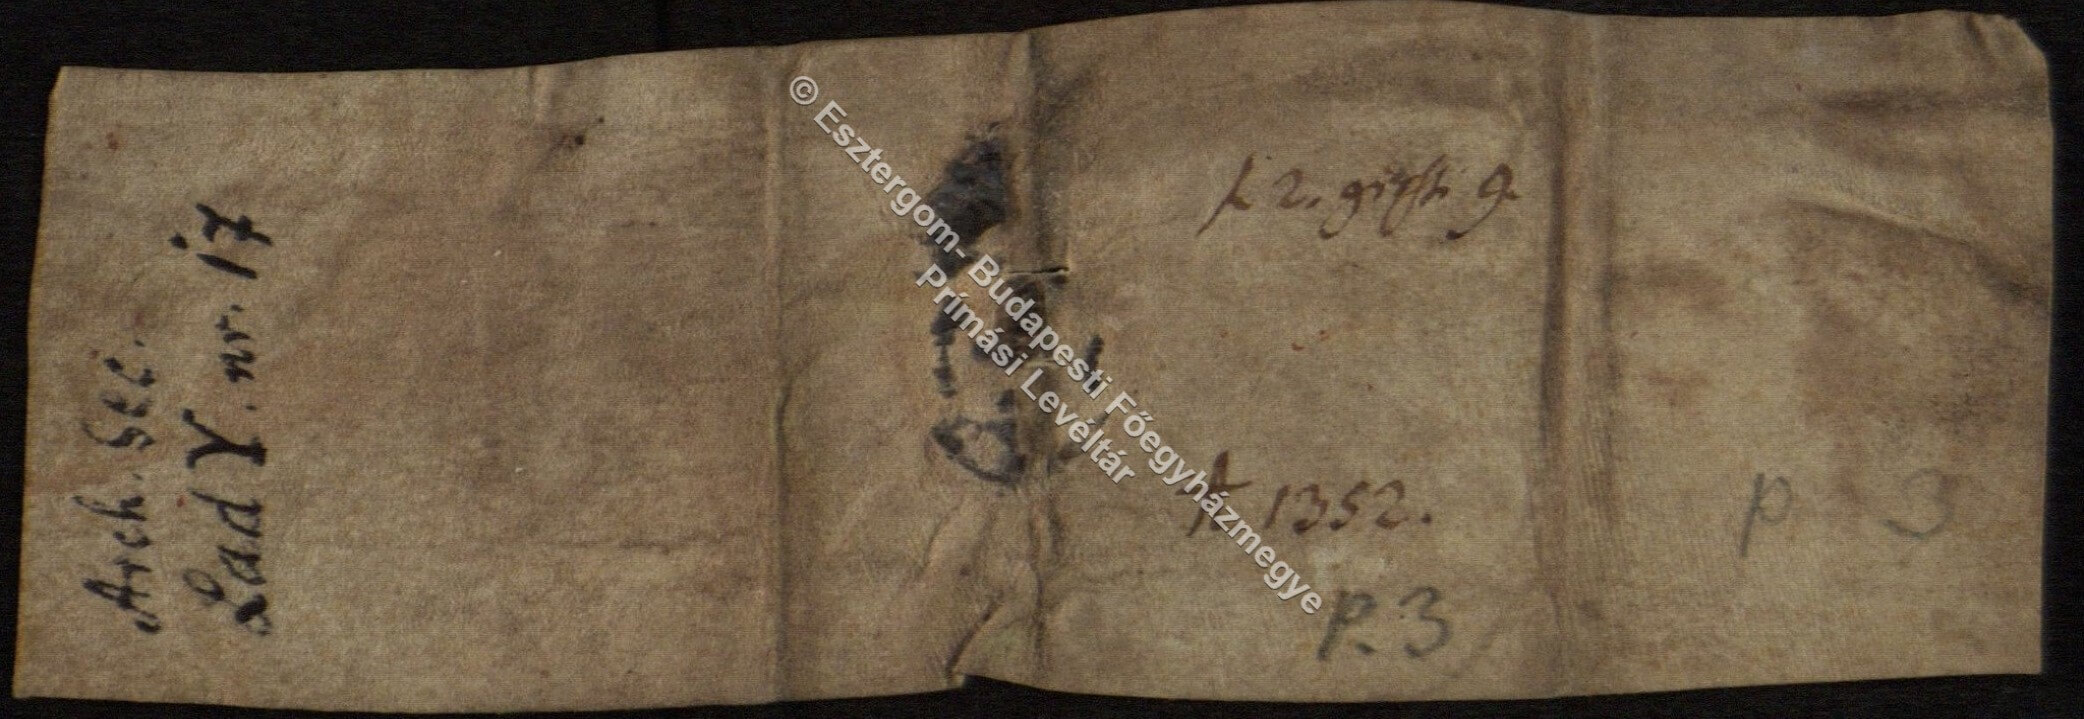 Arch. Sec.
Lad Y. nr. 17
f. 2.
A 1352.
P. 3
p 3
© Esztergom-Budapesti Főegyházmegye
Prímási Levéltár